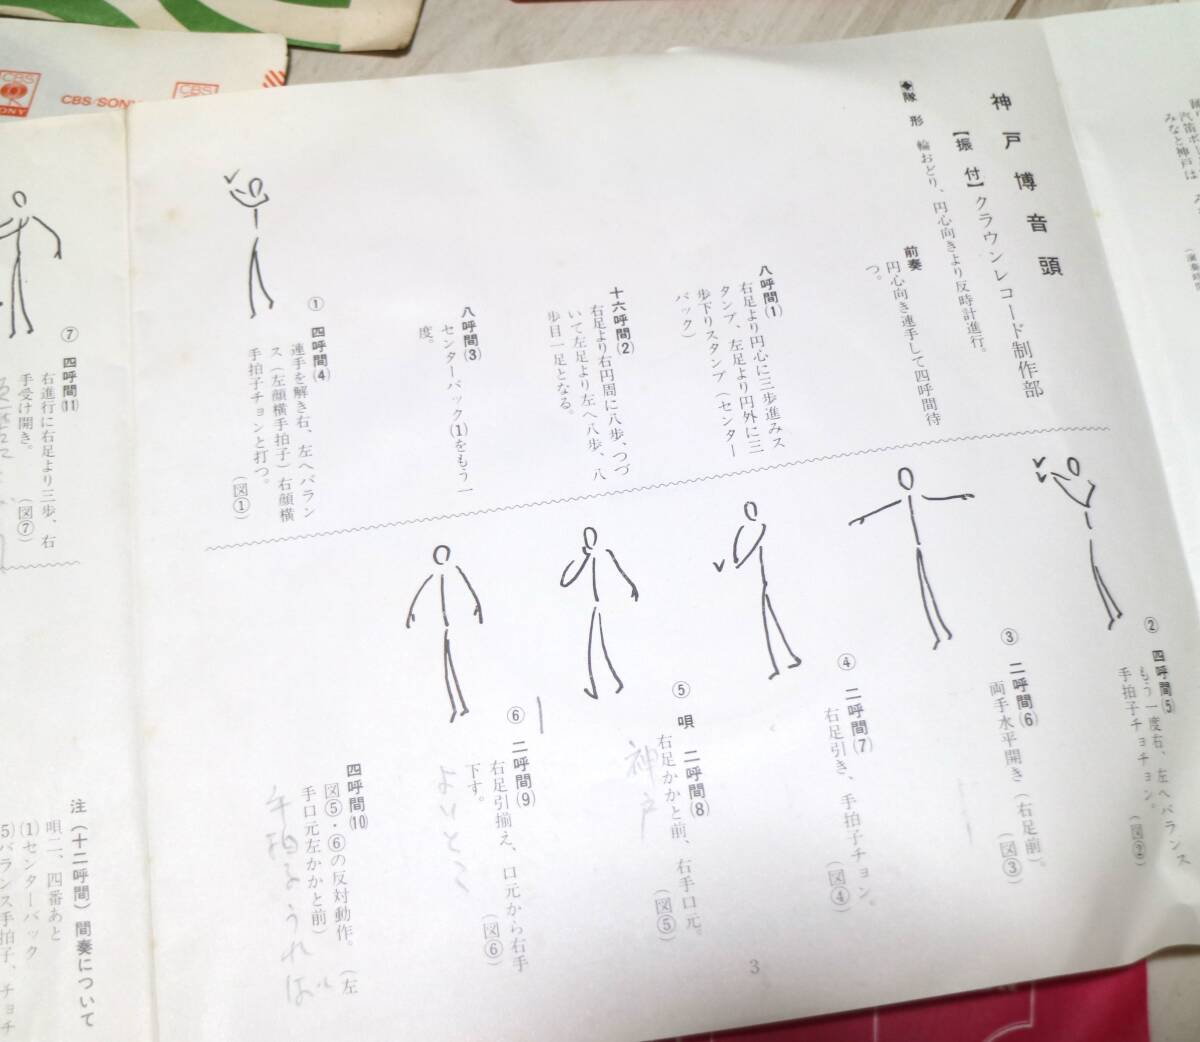 神戸博音頭
【振付】クラウンレコード制作部
◆隊形 輪おどり、円心向きより反時計進行。
前奏
円心向き連手して四呼間待
つ。
八呼間(1)
右足より円心に三歩進みス
タンプ、左足より円外に三
歩下りスタンプ(センター
バック)
十六呼間(2)
右足より右円周に八歩、つづ
いて左足より左へ八歩、八
歩目一足となる。
八呼間(3)
センターバック(1)をもう一
度。
① 四呼間(4)
連手を解き右、左へバラン
ス(左顔横手拍子)右顔横
手拍子チョンと打つ。
(図①)
② 四呼間(5)
もう一度右、左へバランス
手拍子チョチョン。
(図②)
③ 二呼間(6)
両手水平開き(右足前)。
(図③)
④ 二呼間(7)
右足引き、手拍子チョン。
(図④)
⑤ 唄 二呼間(8)
右足かかと前、右手口元。
(図⑤)
神戸
⑥ 二呼間(9)
右足引揃え、口元から右手
下す。
(図⑥)
よいとこ
四呼間(10)
図⑤・⑥の反対動作。(左
手口元左かかと前)
3
⑦ 四呼間(11)
右進行に右足より三歩、右
手受け開き。
(図⑦)
注(十二呼間)間奏について
唄二、四番あと
(1)センターバック
5)バランス手拍子、チョチ
汽笛ボー
みなと神戸は
CBS
SONY
CBS/SONY
CBS